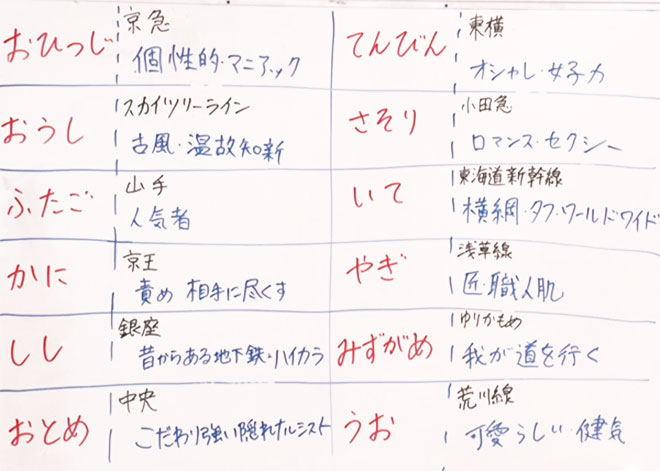 おひつじ
京急
個性的・マニアック
おうし
スカイツリーライン
古風・温故知新
ふたご
山手
人気者
かに
京王
責め 相手に尽くす
しし
銀座
昔からある地下鉄・ハイカラ
おとめ
中央
こだわり強い隠れナルシスト
てんびん
東横
オシャレ・女子力
さそり
小田急
ロマンス・セクシー
いて
東海道新幹線
横綱・タフ・ワールドワイド
やぎ
浅草線
匠・職人肌
みずがめ
ゆりかもめ
我が道を行く
うお
荒川線
可愛らしい・健気